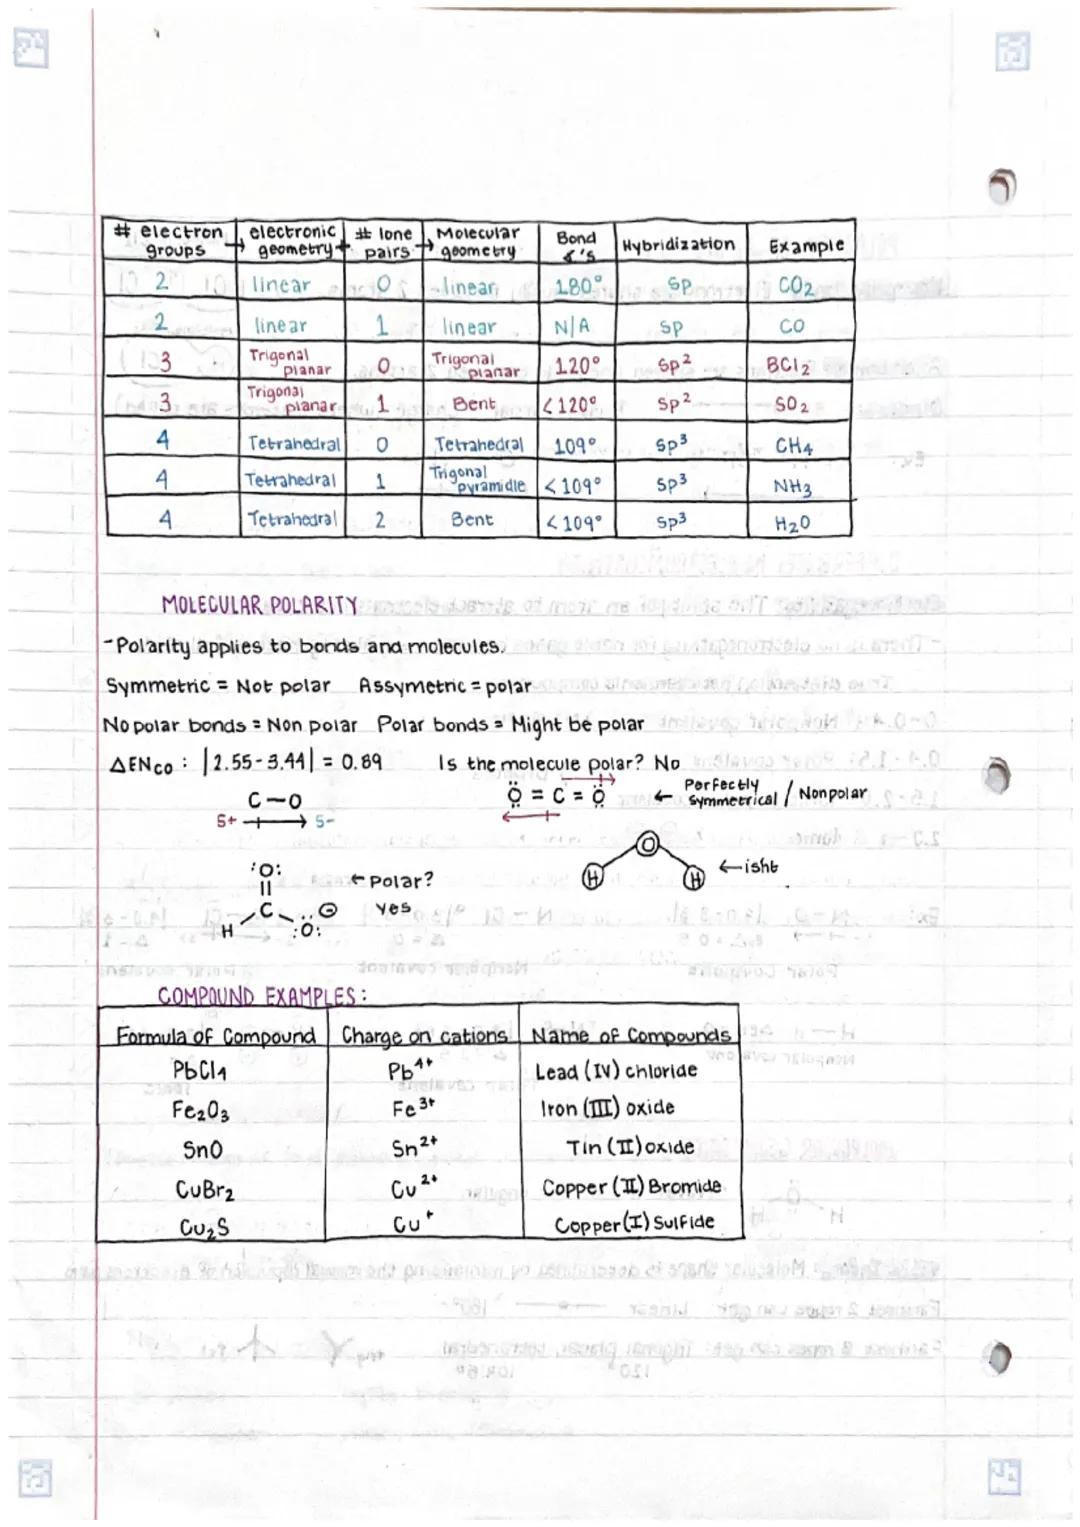 # electron groups → electronic geometry + # lone pairs → Molecular geometry Bond ∡'s Hybridization Example
2 linear 0 linear 180° sp CO₂
2 linear 1 linear N/A sp CO
3 Trigonal planar 0 Trigonal planar 120° sp² BCl₂
3 Trigonal planar 1 Bent <120° sp² SO₂
4 Tetrahedral 0 Tetrahedral 109° sp³ CH₄
4 Tetrahedral 1 Trigonal pyramidle <109° sp³ NH₃
4 Tetrahedral 2 Bent <109° sp³ H₂O
MOLECULAR POLARITY
-Polarity applies to bonds and molecules.
Symmetric = Not polar Assymetric = polar
No polar bonds = Non polar Polar bonds = Might be polar
ΔEN co : |2.55-3.44| = 0.89 Is the molecule polar? No
C-O Ö = C = Ö ← Perfectly symmetrical / Nonpolar
δ+ δ-
O
H H ← isht
:O: ← Polar?
C Yes
H :O: ⊖
COMPOUND EXAMPLES:
Formula of Compound Charge on cations Name of Compounds
PbCl₄ Pb⁴⁺ Lead (IV) chloride
Fe₂O₃ Fe³⁺ Iron (III) oxide
SnO Sn²⁺ Tin (II) oxide
CuBr₂ Cu²⁺ Copper (II) Bromide
Cu₂S Cu⁺ Copper (I) Sulfide